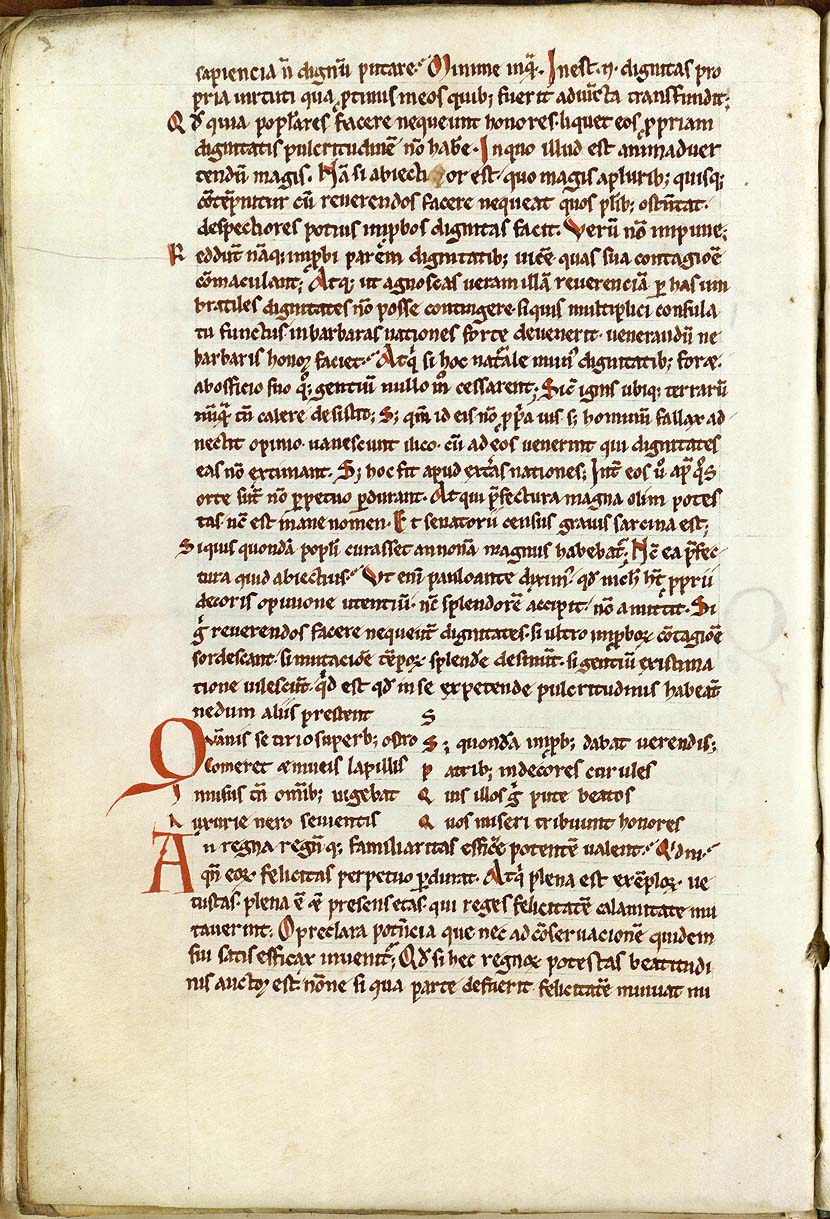 sapiencia n̄ dignū putare. Minime inq̄. Inest .n. dignitas pro
pria uirtuti qua p̱tinus in eos quib; fuerit adiūcta transfundit;
Qđ quia popl̄ares facere nequeunt honores. liquet eos ꝓpriam
dignitatis pulcritudinē nō hab̄e. In quo illud est animaduer
tendū magis. Nā si abiecti or est. quo magis a plurib; quisq;
cōtēpnitur cū reuerendos facere nequeat quos plīb; ostēntat.
despectiores potius imp̱bos dignitas facit. Verū nō impune;
Reddūt nāq; imp̱bi parēm dignitatib; uicē quas sua contagiōe
cōmaculant; Atq; ut agnoscas ueram illā reuerenciā p̱ has um
bratiles dignitates nō posse contingere. siquis multiplici consula
tu functus in barbaras nationes forte deuenerit. uenerandū ne
barbaris honoꝝ faciet. Atq̇ si hoc nat̄ale mun⁹ dignitatib; foræ.
ab officio suo q̊q; gentiū nullo m̊ cessarent; Sic̄ ignis ubiq; terrarū
nūq̄ tn̄ calere desistit; S; qm̄ id eis nō ꝓp̄a uis s; hominū fallax ad
nectit opinio. uanescunt ilico. cū ad eos uenerint qui dignitates
eas nō extimant. S; hoc fit apud ext̄as nationes; Int̄ eos ů ap̄ q̊s
orte sūt nō perpetuo p̱durant. Atqui p̄fectura magna olim potes
tas nc̄ est inane nomen. Et senatorii census grauis sarcina est;
Siquis quondā popl̄i curasset annonā magnus habebat̄. Nc̄ ea p̄fec
tura quid abiectius. Vt enī paulo ante dixim⁹. qđ nich̄ ht̄ ꝓprii
decoris opinione utentiū. nc̄ splendorē accipit. nō amittit. Si
g̊ reuerendos facere nequeūt dignitates. si ultro imp̱boꝝ cōtagiōe
sordescant. si mutaciōe tēpoꝝ splend̄e desinūt. si gentiū existima
tione uilescūt. q̇d est qđ in se expetende pulcritudinis habeāt
nedum aliis prestent S
Qvāuis se tirio superb; ostro S; quondā imp̱b; dabat uerendis;
Comeret æ niueis lapillis patrib; indecores curules
Inuisus tn̄ omīb; uigebat Quis illos g̊ pute beatos
Luxurie nero seuientis Quos miseri tribuunt honores
An regna regūq; familiaritas effic̄e potentē ualent. Qđni.
qn̄ eoꝝ felicitas perpetuo p̱durat. Atq̇ plena est exēploꝝ. ue
tustas. plena ē & presens etas qui reges felicitatē calamitate mu
tauerint. O preclara potn̄cia que nec ad cōseruacionē quidem
sui satis efficax inuenit̄; Qđ si hec regnoꝝ potestas beatitudi
nis auctoꝝ est. nōne si qua parte defuerit. felicitatē minuat mi